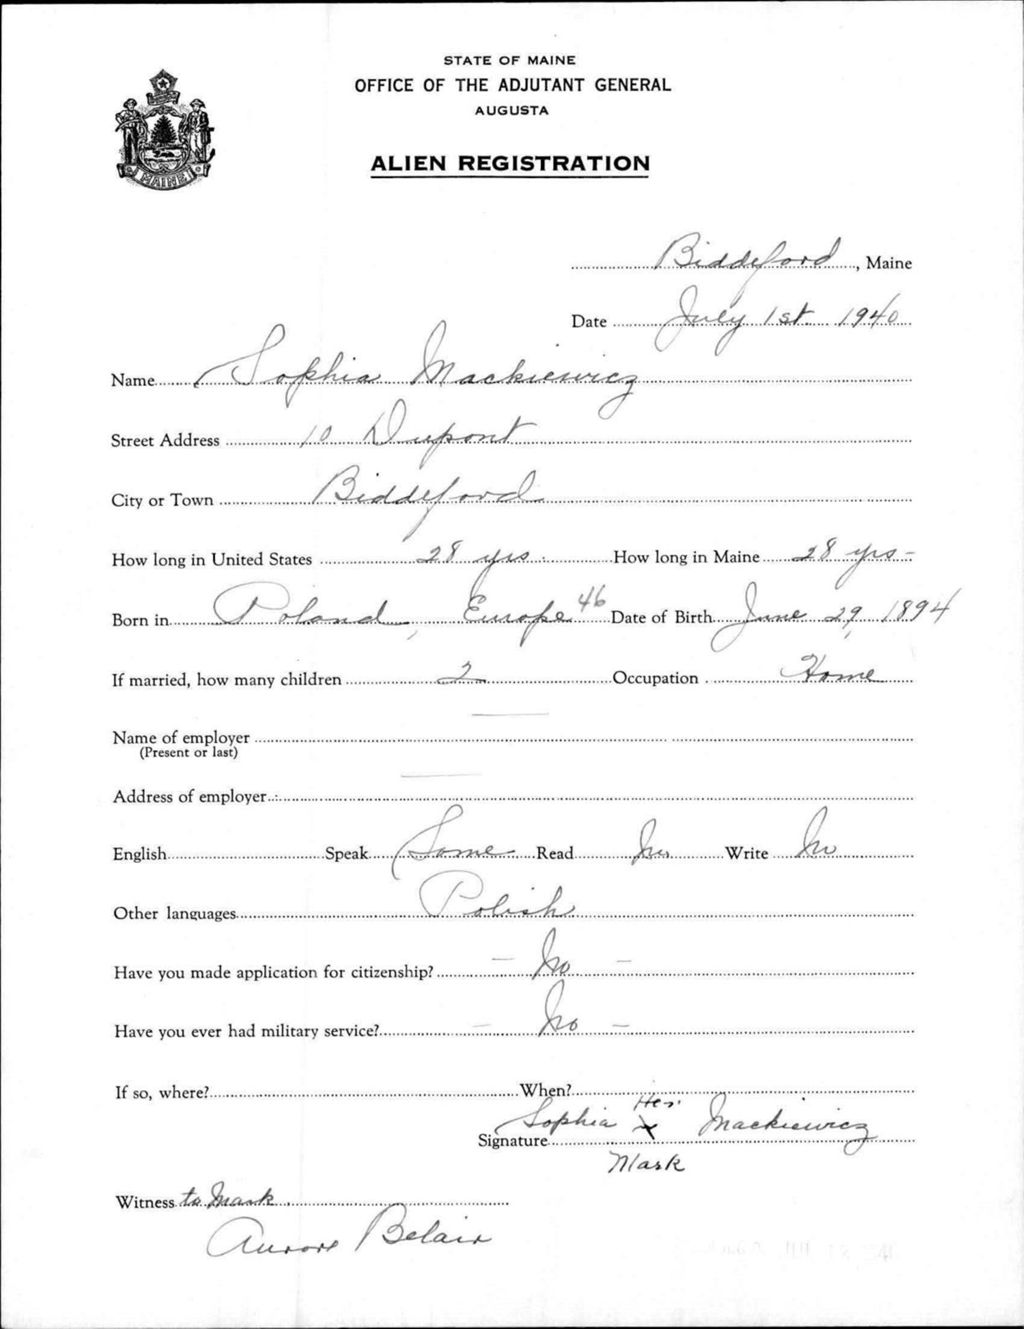 STATE OF MAINE
OFFICE OF THE ADJUTANT GENERAL
AUGUSTA
ALIEN REGISTRATION
MAINE
Biddeford, Maine
Date July 1st 1940
Name Sophia Mackiewicz
Street Address 10 Dupont
City or Town Biddeford
How long in United States 28 yrs. How long in Maine 28 yrs -
Born in Poland, Europe 46 Date of Birth June 29, 1894
If married, how many children 2 Occupation Home
Name of employer
(Present or last)
Address of employer
English Speak Some Read No Write No
Other languages Polish
Have you made application for citizenship? - No -
Have you ever had military service? - No -
If so, where? When?
Signature Sophia Her X Mackiewicz
Mark
Witness to Mark
Aurore Belair